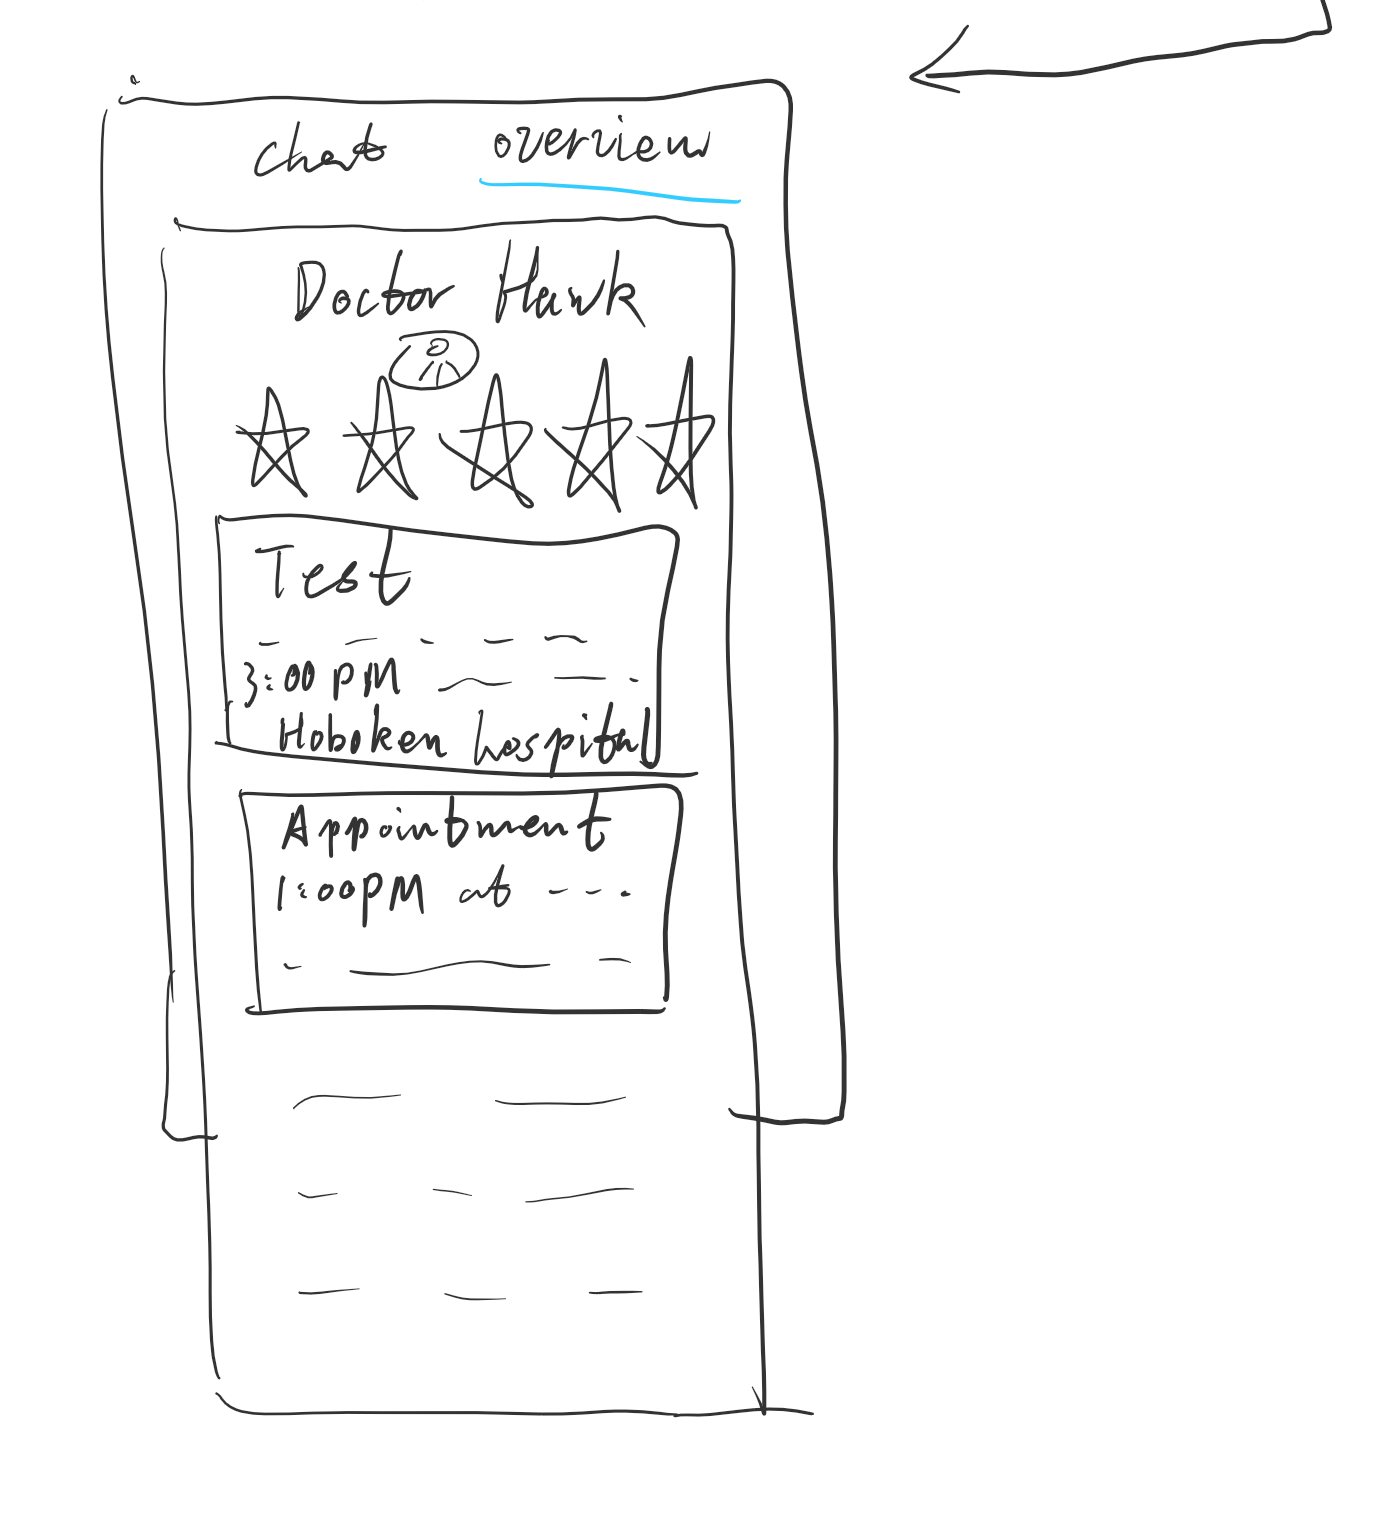 chat overview
Doctor Hawk
Test
3:00 PM
Hoboken hospital
Appointment
1:00PM at ---